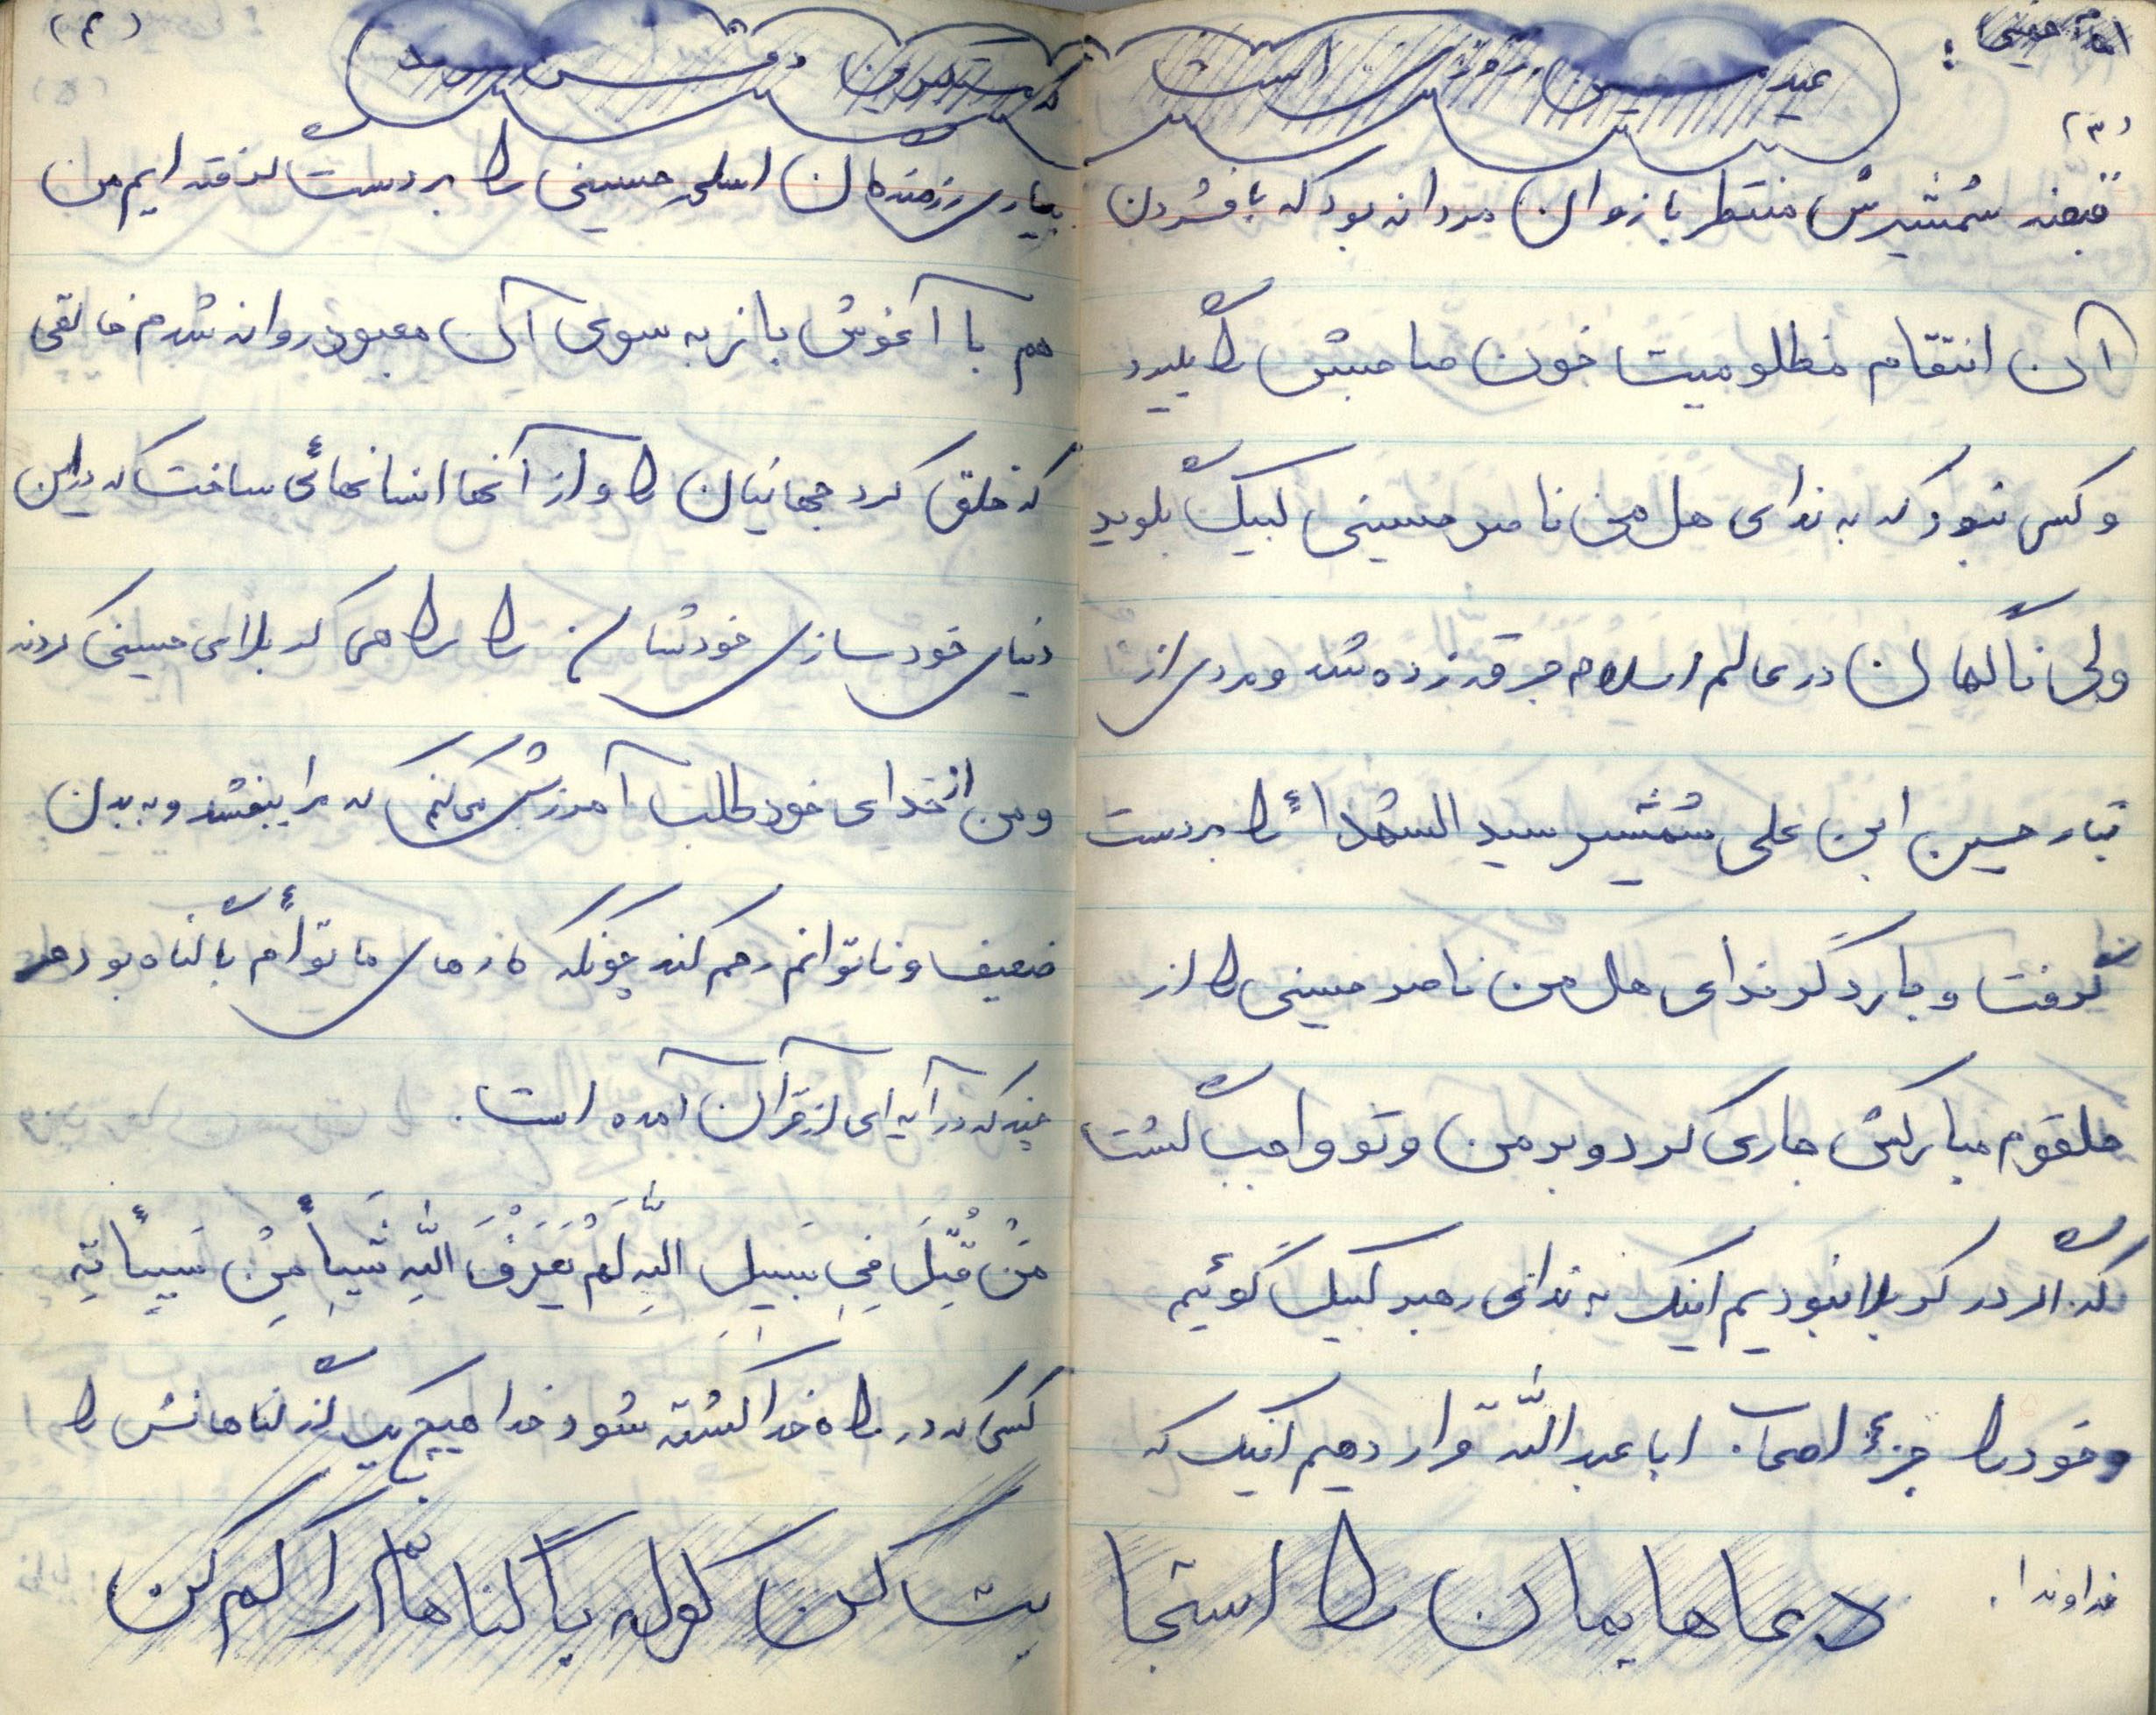 امام خمینی:
عید روزی است
(۳)
قبضه شمشیرش منتظر بازوان مردانه بود که با فشردن
آن انتقام مظلومیت خون صاحبش را بگیرد
و کسی نبود که به ندای هل من ناصر حسینی لبیک بگوید
ولی ناگهان در عالم اسلام جرقه زده شد و مردی از
تبار حسین ابن علی شمشیر سید الشهداء را بر دست
گرفت و بار دگر ندای هل من ناصر حسینی را از
حلقوم مبارکش جاری کرد و بر من و تو واجب گشت
که اگر در کربلا نبودیم اینک به ندای رهبر لبیک گوئیم
و خود را جزء اصحاب ابا عبد اللّه قرار دهیم اینک که
خداوندا. دعاهایمان را استجا
(۴)
که مستضعفین دفن
بیاری رزمندگان اسلام حسینی را بر دست گرفته ایم من
هم با آغوش باز به سوی آن معبود روانه شدم خالقی
که خلق کرد جهانیان را و از آنها انسانهائی ساخت که در این
دنیای خود سازی خودشان را راهی کربلای حسینی کردند
و من از خدای خود طلب آمرزش میکنم که مرا ببخشد و به بدن
ضعیف و ناتوانم رحم کند چونکه کارهای ما توأم با گناه بود هر
چند که در آیه ای از قرآن آمده است.
مَنْ قُتِّلَ فِی سَبیلِ اللّهِ لَمْ یُعَرِّفْ اللّهِ شَیأً مِنْ سَیِئاتِه
کسی که در راه خدا کشته شود خدا هیچ یک از گناهانش را
بت کن کوله با گناهان را کم کن